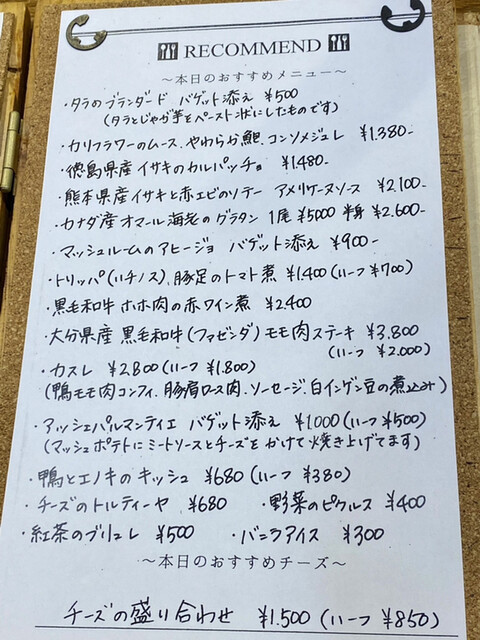 RECOMMEND
～本日のおすすめメニュー～
・タラのブランダード バゲット添え ¥500
(タラとじゃが芋をペースト状にしたものです)
・カリフラワーのムース、やわらか鮑、コンソメジュレ ¥1.380-
・徳島県産イサキのカルパッチョ ¥1.480-
・熊本県産イサキと赤エビのソテー アメリケーヌソース ¥2.100-
・カナダ産オマール海老のグラタン 1尾¥5000 半身¥2.600-
・マッシュルームのアヒージョ バゲット添え ¥900-
・トリッパ(ハチノス)、豚足のトマト煮 ¥1.400 (ハーフ ¥700)
・黒毛和牛 ホホ肉の赤ワイン煮 ¥2400
・大分県産 黒毛和牛(ファゼンダ)モモ肉ステーキ ¥3.800
(ハーフ ¥2.000)
・カスレ ¥2800 (ハーフ ¥1.800)
(鴨モモ肉コンフィ、豚肩ロース肉、ソーセージ、白インゲン豆の煮込み)
・アッシェパルマンティエ バゲット添え ¥1000 (ハーフ ¥500)
(マッシュポテトにミートソースとチーズをかけて焼き上げてます)
・鴨とエノキのキッシュ ¥680 (ハーフ ¥380)
・チーズのトルティーヤ ¥680 ・野菜のピクルス ¥400
・紅茶のブリュレ ¥500 ・バニラアイス ¥300
～本日のおすすめチーズ～
チーズの盛り合わせ ¥1.500 (ハーフ ¥850)